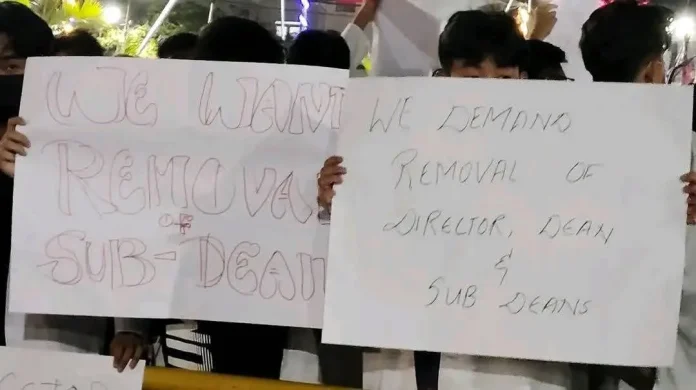 WE WANT
REMOVAL
OF
SUB-DEAN
WE DEMAND
REMOVAL OF
DIRECTOR, DEAN
&
SUB DEANS